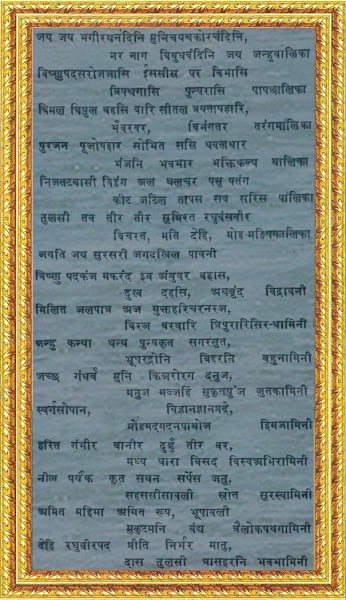 जय जय भगीरथनंदिनि मुनिचयचकोरचंदिनि,
नर नाग बिबुधबंदिनि जय जन्हुबालिका
बिष्णुपदसरोजजासि ईससीस पर बिभासि
त्रिपथगासि पुन्यरासि पापछालिका
बिमल बिपुल बहसि बारि सीतल त्रयतापहारि,
भँवरबर, बिभंगतर तरंगमालिका
पुरजन पूजोपहार सोभित ससि धवलधार
भंजनि भवभार भक्तिकल्प थालिका
निजतटबासी बिहंग जल थलचर पसु पतंग
कीट जटिल तापस सब सरिस पालिका
तुलसी तव तीर तीर सुमिरत रघुबंसबीर
बिचरत, मति देहि, मोह-महिषकालिका
जयति जय सुरसरी जगदखिल पावनी
बिष्णु पदकंज मकरंद इव अंबुबर बहसि,
दुख दहसि, अघबृंद बिद्रावनी
मिलित जलपात्र अज युक्तहरिचरनरज,
बिरज बरबारि त्रिपुरारिसिर-धामिनी
जन्हु कन्या धन्य पुन्यकृत सगरसुत,
भूधरद्रोनि बिहरनि बहुनामिनी
जच्छ गंधर्ब मुनि किन्नरोरग दनुज,
मनुज मज्जहिं सुकृतपुंज जुतकामिनी
स्वर्गसोपान, बिज्ञानज्ञानप्रदे,
मोहमदमदनपाथोज हिमजामिनी
हरित गंभीर बानीर दुहुँ तीर बर,
मध्य धारा बिसद बिस्वअभिरामिनी
नील पर्यंक कृत सयन सर्पेस जनु,
सहससीसावली स्रोत सुरस्वामिनी
अमित महिमा अमित रूप, भूपावली
मुकुटमनि बंद्य त्रैलोकपथगामिनी
देहि रघुबीरपद प्रीति निर्भर मातु,
दास तुलसी त्रासहरनि भवभामिनी